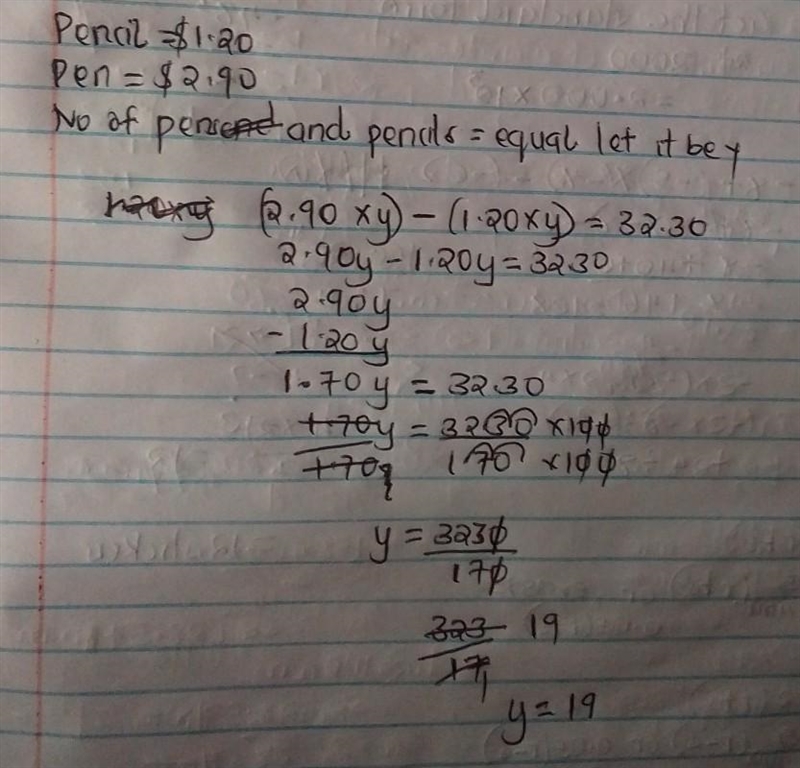 Pencil = $1.20
Pen = $2.90
No of pens and pencils = equal let it be y
(2.90 x y) - (1.20 x y) = 32.30
2.90y - 1.20y = 32.30
2.90y
- 1.20y
1.70y = 32.30
1.70y = 32.30 x 100
1.70y 1.70 x 100
y = 3230
170
323 19
17 1
y = 19